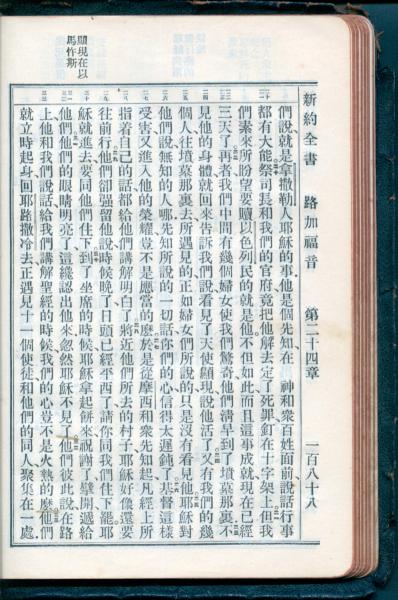 新約全書 路加福音 第二十四章 一百八十八
們說就是拿撒勒人耶穌的事、他是個先知在 神和衆百姓面前說話行事
都有大能、祭司長和我們的官府竟把他解去定了死罪釘在十字架上、但我
們素來所盼望要贖以色列民的就是他、不但如此而且這事成就現在已經
三天了、再者我們中間有幾個婦女使我們驚奇他們清早到了墳墓那裏、不
見他的身體就回來告訴我們說看見了天使顯現說他活了、又有我們的幾
個人往墳墓那裏去所遇見的正如婦女們所說的只是沒有看見他、耶穌對
他們說無知的人哪先知所說的一切話你們的心信得太遲鈍了、基督這樣
受害又進入他的榮耀豈不是應當的麽、於是從摩西和衆先知起凡經上所
指着自己的話都給他們講解明白了、將近他們所去的村子耶穌好像還要
往前行、他們卻强留他說時候晚了日頭已經平西了請你同我們住下罷耶
穌就進去要同他們住下、到了坐席的時候耶穌拿起餅來祝謝了擘開遞給
他們、他們的眼睛明亮了這纔認出他來忽然耶穌不見了、他們彼此說在路
上他和我們說話給我們講解聖經的時候我們的心豈不是火熱的麽、他們
就立時起身回耶路撒冷去正遇見十一個使徒和他們的同人聚集在一處、
顯現在以
馬忤斯